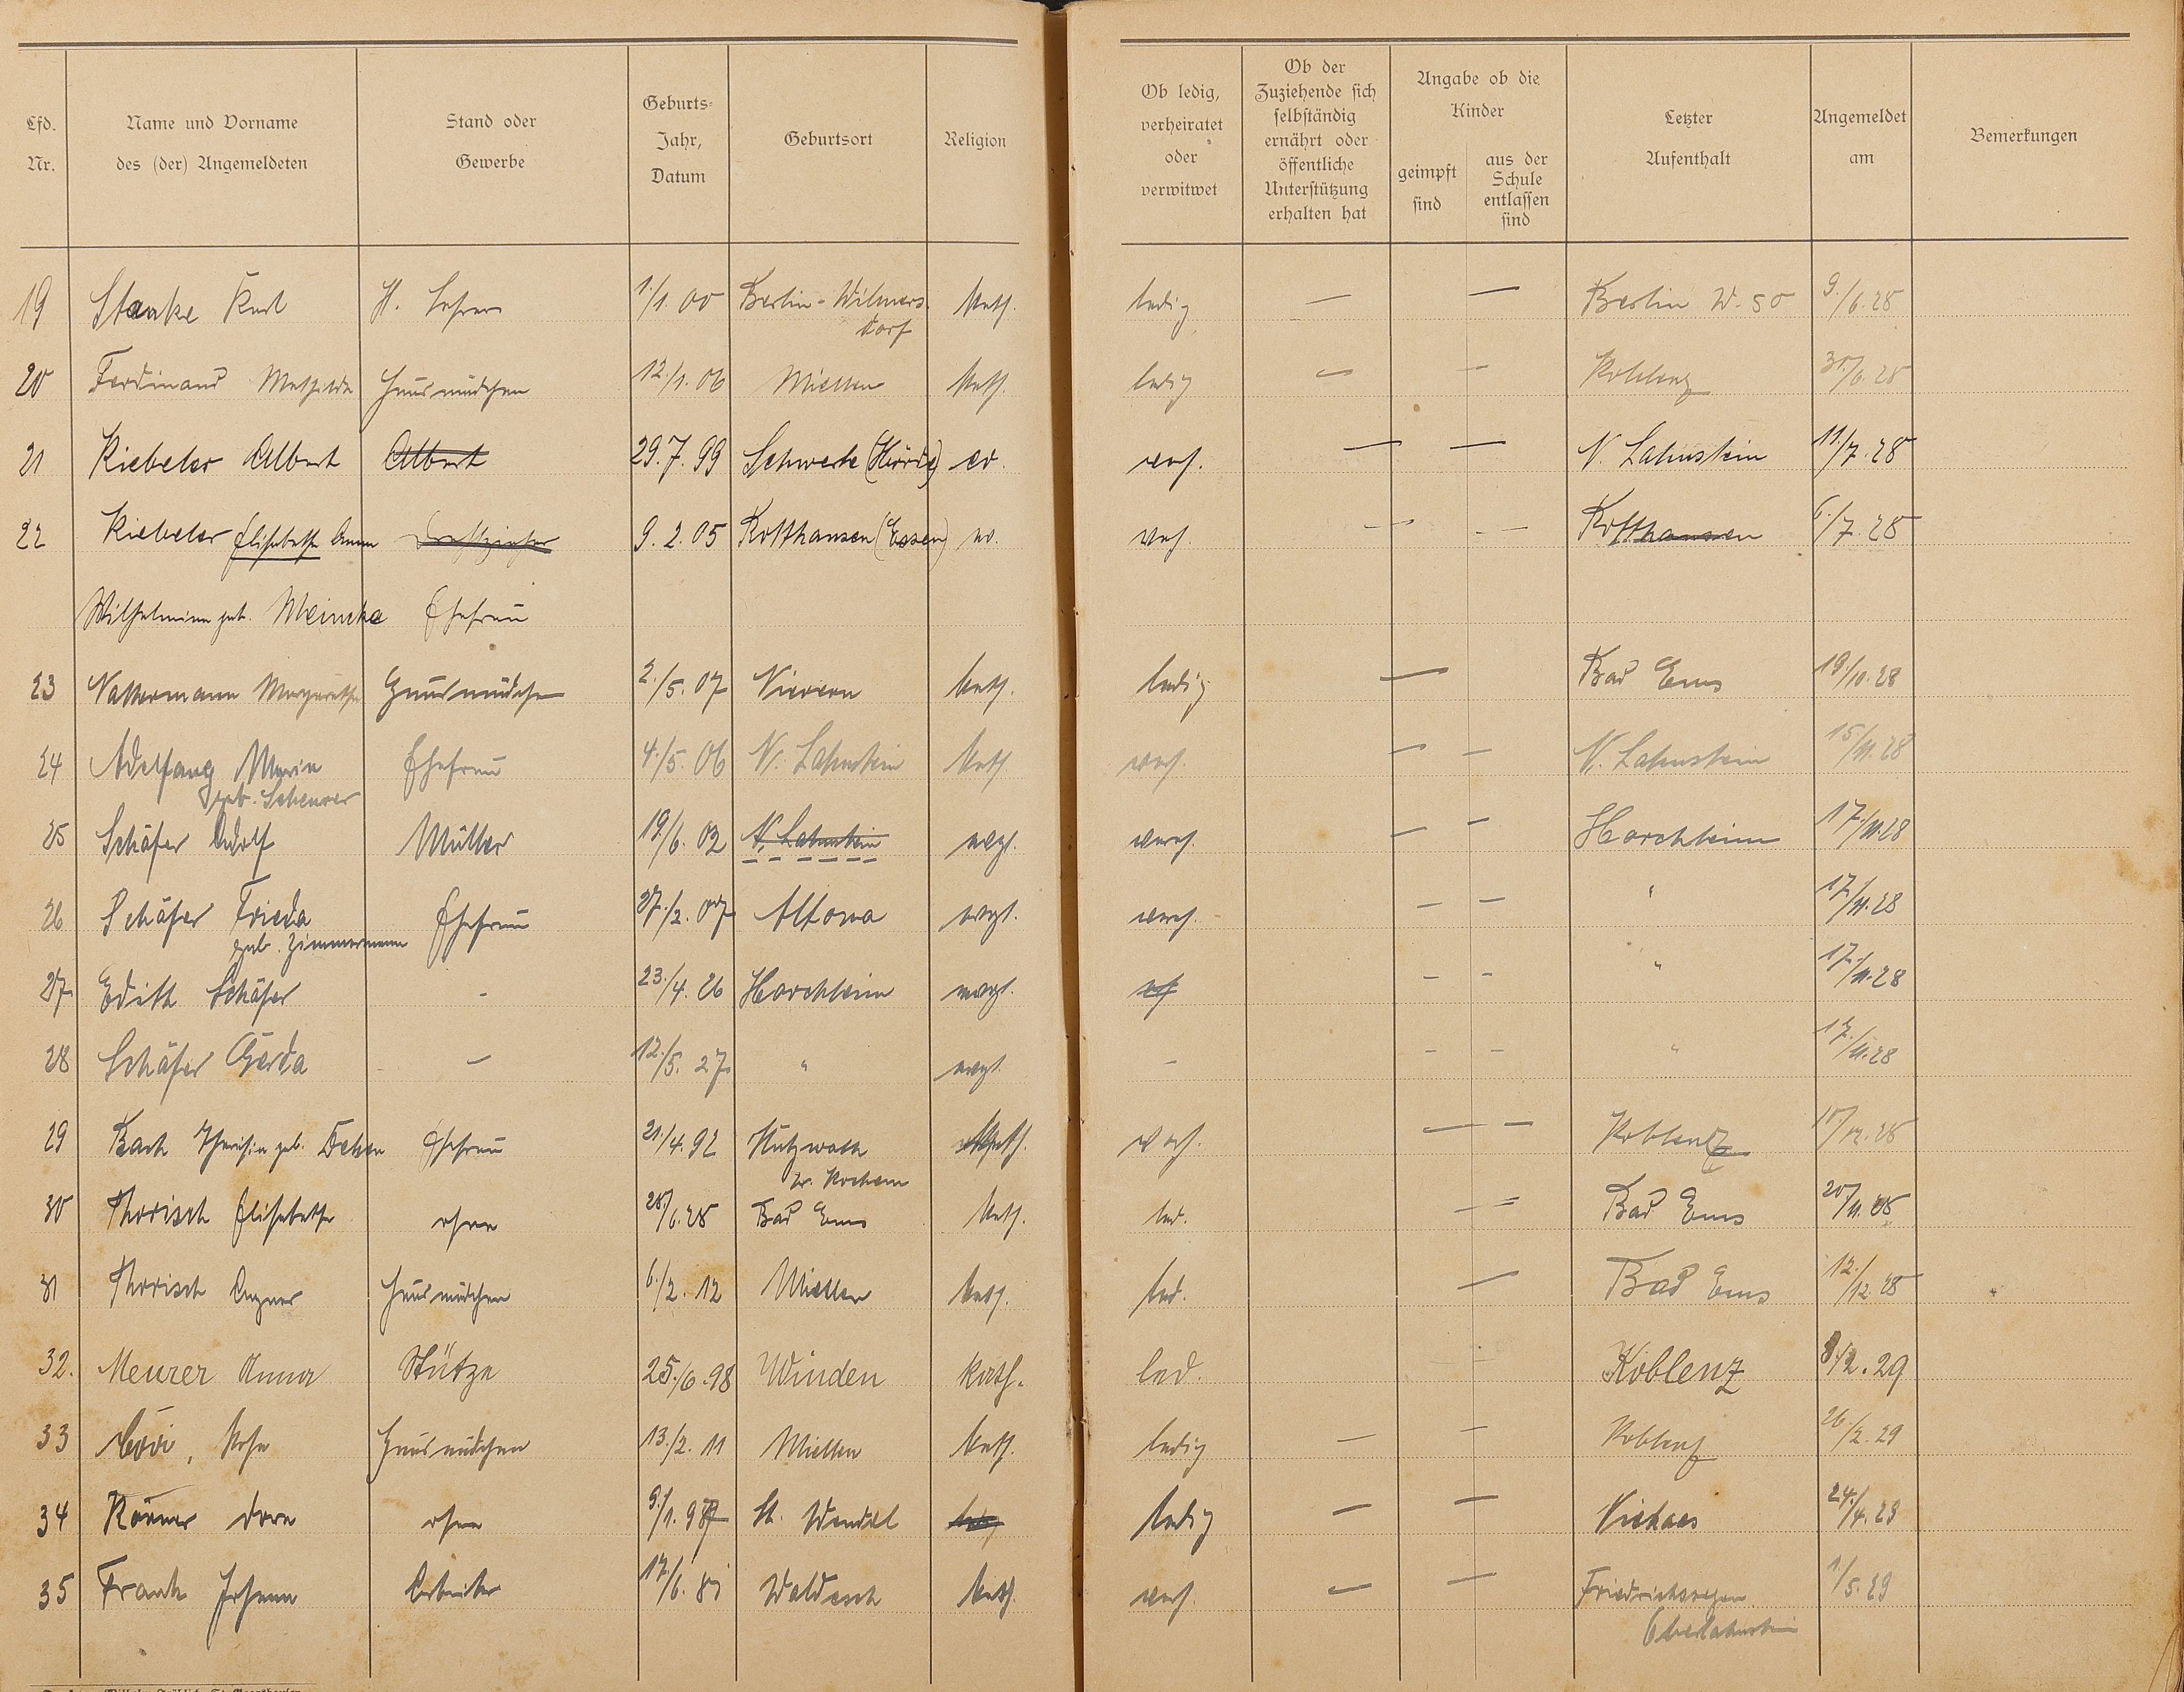 Lfd. Nr. Name und Vorname des (der) Angemeldeten Stand oder Gewerbe Geburts-Jahr, Datum Geburtsort Religion Ob ledig, verheiratet oder verwitwet Ob der Zuziehende sich selbständig ernährt oder öffentliche Unterstützung erhalten hat Angabe ob die Kinder geimpft sind aus der Schule entlassen sind Letzter Aufenthalt Angemeldet am Bemerkungen
19 Staake Karl H. Lehrer 1./1. 00 Berlin-Wilmers- kath. ledig — — Berlin W. 50 9./6. 28
dorf
20 Ferdinand Mathilde Hausmädchen 12./1. 06 Miellen kath. ledig — — Koblenz 30/6. 28
21 Kiebeler Albert Albert 29. 7. 99 Schwerte (Hörde) ev. verh. — — N. Lahnstein 11./7. 28
22 Kiebeler Elisabethe Anna 9. 2. 05 Rotthausen (Essen) ev. verh. — — Rotthausen 6./7. 28
Wilhelmine geb. Meincke Ehefrau
23 Nattermann Margarethe Hausmädchen 2./5. 07 Nievern kath. ledig — Bad Ems 19/10. 28
24 Adelfang Maria Ehefrau 4./5. 06 N. Lahnstein kath. verh. — — N. Lahnstein 15/11. 28
geb. Scheurer
25 Schäfer Adolf Müller 19./6. 02 N. Lahnstein evgl. verh. — — Horchheim 17./11. 28
26 Schäfer Frieda Ehefrau 27./2. 07 Altona evgl. verh. — — " 17./11. 28
geb. Zimmermann
27 Edith Schäfer - 23./4. 26 Horchheim evgl. — — " 17./11. 28
28 Schäfer Gerda — 12./5. 27 " evgl. - - - " 17./11. 28
29 Bach Theresia geb. Ehefrau 21/4. 92 kath. verh. — — Koblenz
Kr. Kochem
30 Thorisch Elisabethe ohne 28/6. 28 Bad Ems kath. led. — — Bad Ems 20/11. 28
31 Thorisch Hausmädchen 6./2. 12 Miellen kath. led. — Bad Ems 12./12. 28
32. Meurer Anna Stütze 25./6. 98 Winden kath. led. - Koblenz 8./2. 29
33 Hausmädchen 13./2. 11 Miellen kath. ledig — — Koblenz 26/2. 29
34 Körner Dora ohne 9./1. 97 St. Wendel ledig — — 24./4. 29
35 Frank Johann Arbeiter 17/6. Waldesch kath. verh. — — Friedrichssegen 1/5. 29
Oberlahnstein